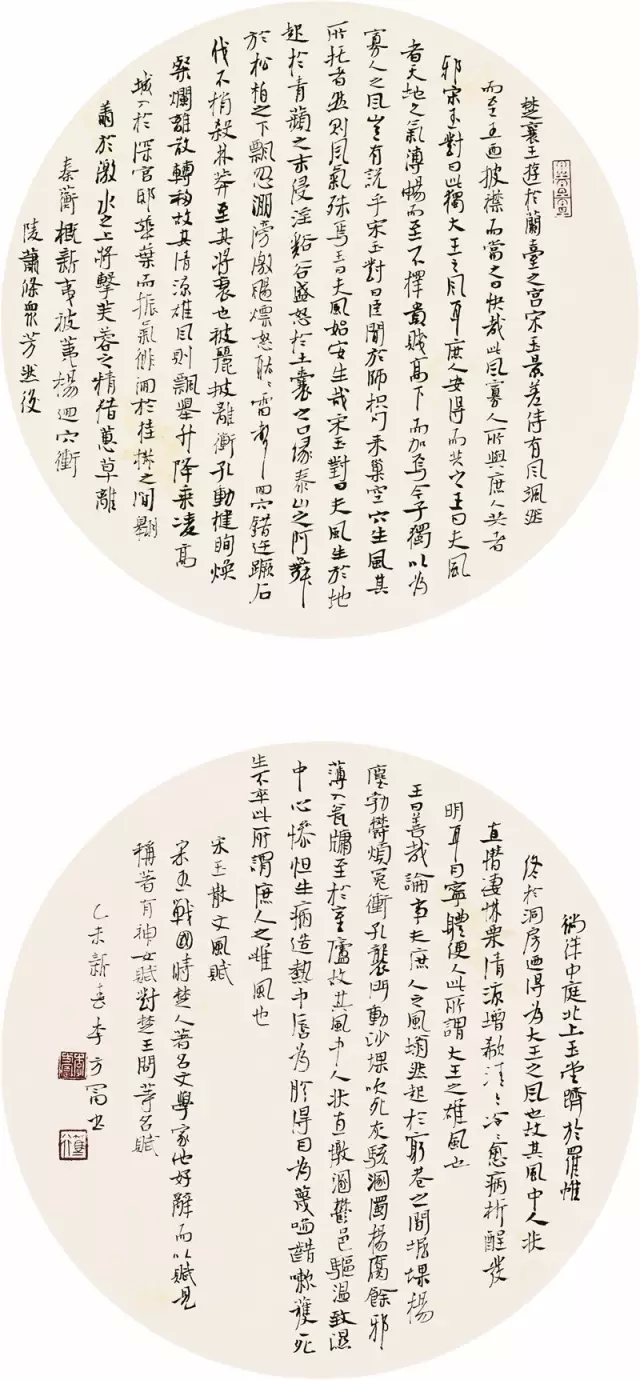 楚襄王游於蘭臺之宫宋玉景差侍有風颯然
而至王西披襟而當之曰快哉此風寡人所與庶人共者
邪宋玉對曰此獨大王之風耳庶人安得而共之王曰夫風
者天地之氣溥暢而至不擇貴賤高下而加焉今子獨以為
寡人之風豈有說乎宋玉對曰臣聞於師枳句来巢空穴生風其
所托者然則風氣殊焉王曰夫風始安生哉宋玉對曰夫風生於地
起於青蘋之末侵淫谿谷盛怒於土囊之口缘泰山之阿舞
於松柏之下飄忽淜滂激飏熛怒耾〻雷聲回穴錯迕蹶石
伐木梢殺林莽至其將衰也被麗披離衝孔動楗眴焕
粲爛離散轉移故其清凉雄風則飄舉升降乘凌高
城入於深宫邸華葉而振氣徘徊於桂椒之間翱
翔於激水之上將擊芙蓉之精猎蕙草離
秦蘅概新夷被荑楊迴穴衝
陵蕭條眾芳然後
徜徉中庭北上玉堂躋於羅帷
終於洞房迺得為大王之風也故其風中人狀
直憯悽惏栗清凉增欷清〻泠〻愈病析酲發
明耳目寧體便人此所謂大王之雄風也
王曰善哉論事夫庶人之風塕然起於窮巷之間堀堁揚
塵勃鬱煩冤衝孔襲門動沙堁吹死灰駭溷濁楊腐餘邪
薄入瓮牖至於室廬故其風中人狀直憞溷鬱邑驅温致濕
中心惨怛生病造熱中唇為胗得目為蔑啗齰嗽獲死
生不卒此所謂庶人之雌風也
宋玉散文風賦
宋玉戰國時楚人著名文學家也好辭而以賦見
稱著有神女賦對楚王問等名賦
乙未新春李方冨书